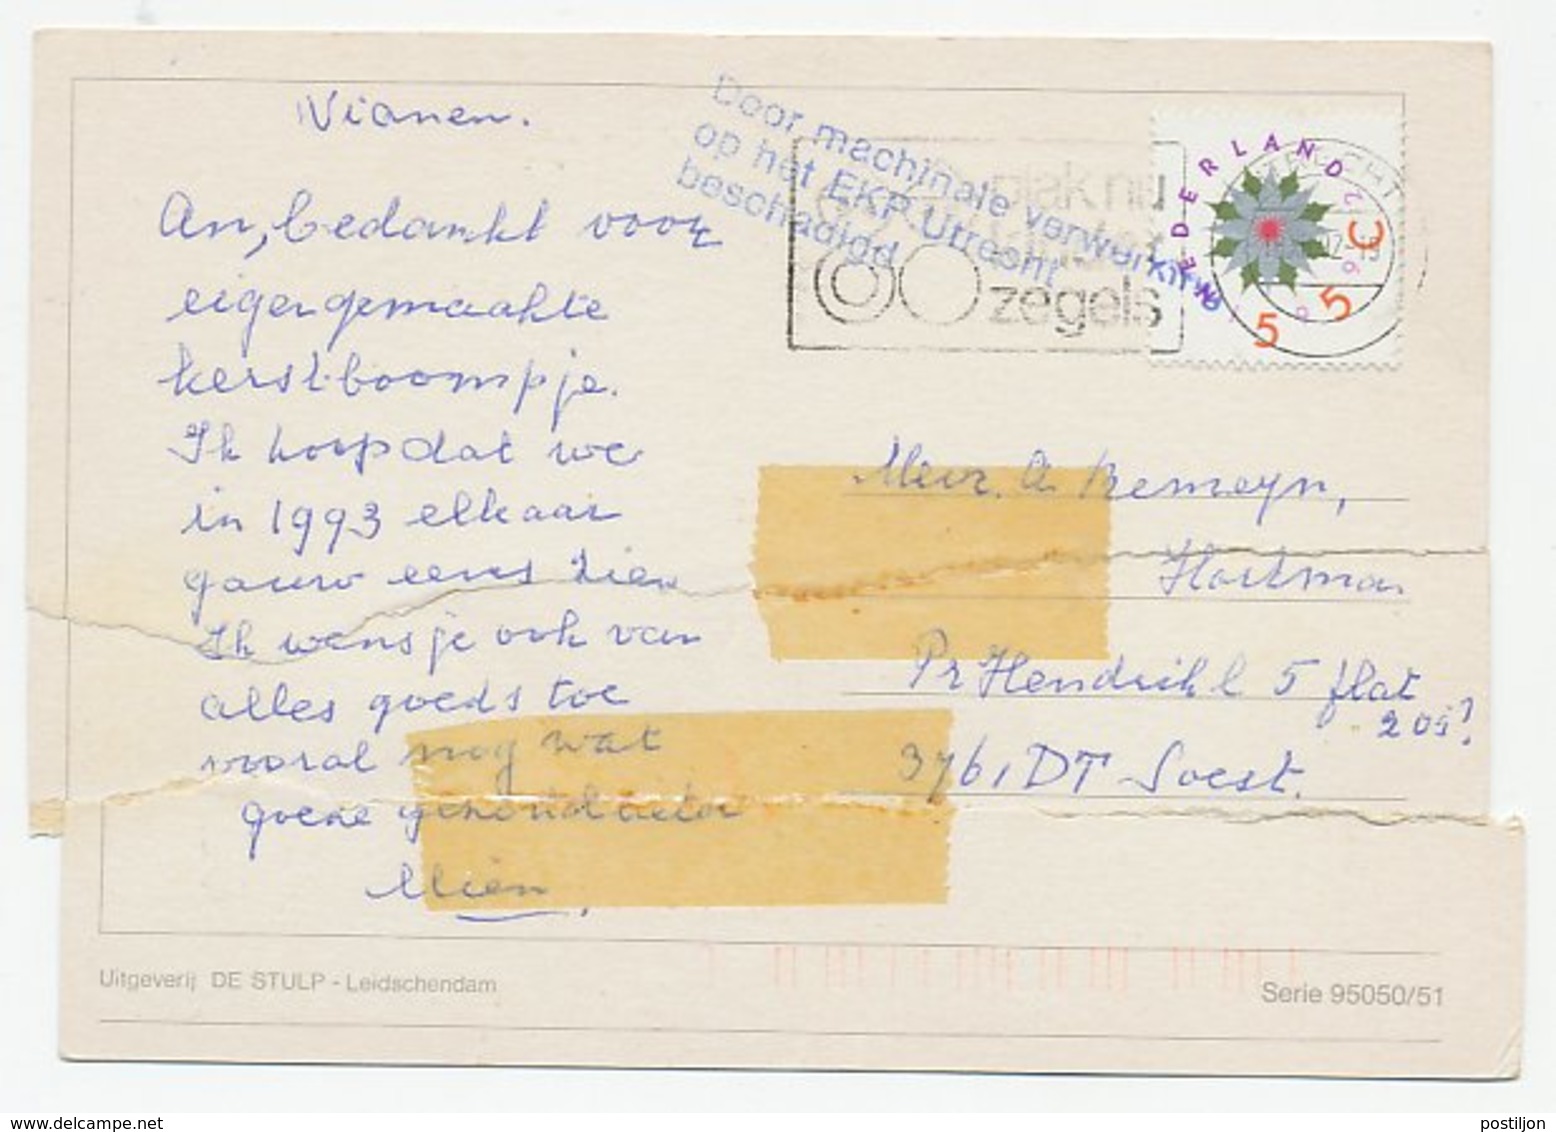 Vianen.
An, bedankt voor
eigengemaakte
kerstboompje.
Ik hoop dat we
in 1993 elkaar
gauw eens zien
Ik wens je ook van
alles goeds toe
vooral nog wat
goede gezondheid
Mien
Door machinale verwerking
op het EKP Utrecht
beschadigd
plak nu
zegels
NEDERLAND
1992
55 C
Mevr. A Remeyn,
Hartman
Pr Hendrik l 5 flat
205?
3761 DT Soest.
Uitgeverij DE STULP - Leidschendam
Serie 95050/51
www.delcampe.net
postiljon